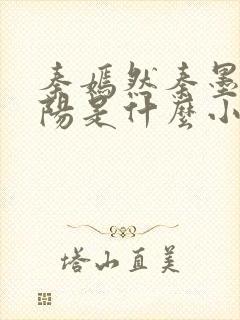 秦嫣然秦墨
陽是什麼小
塔山直美